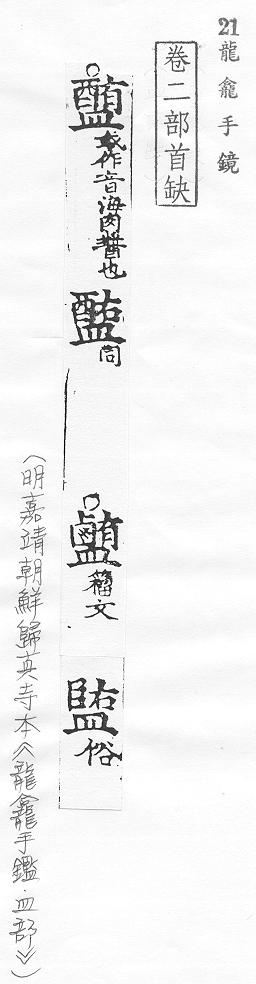 21龍龕手鏡
卷二部首缺
或作音海肉醬也醢同籀文俗
(明嘉靖朝鮮歸真寺本《龍龕手鑑·皿部》)